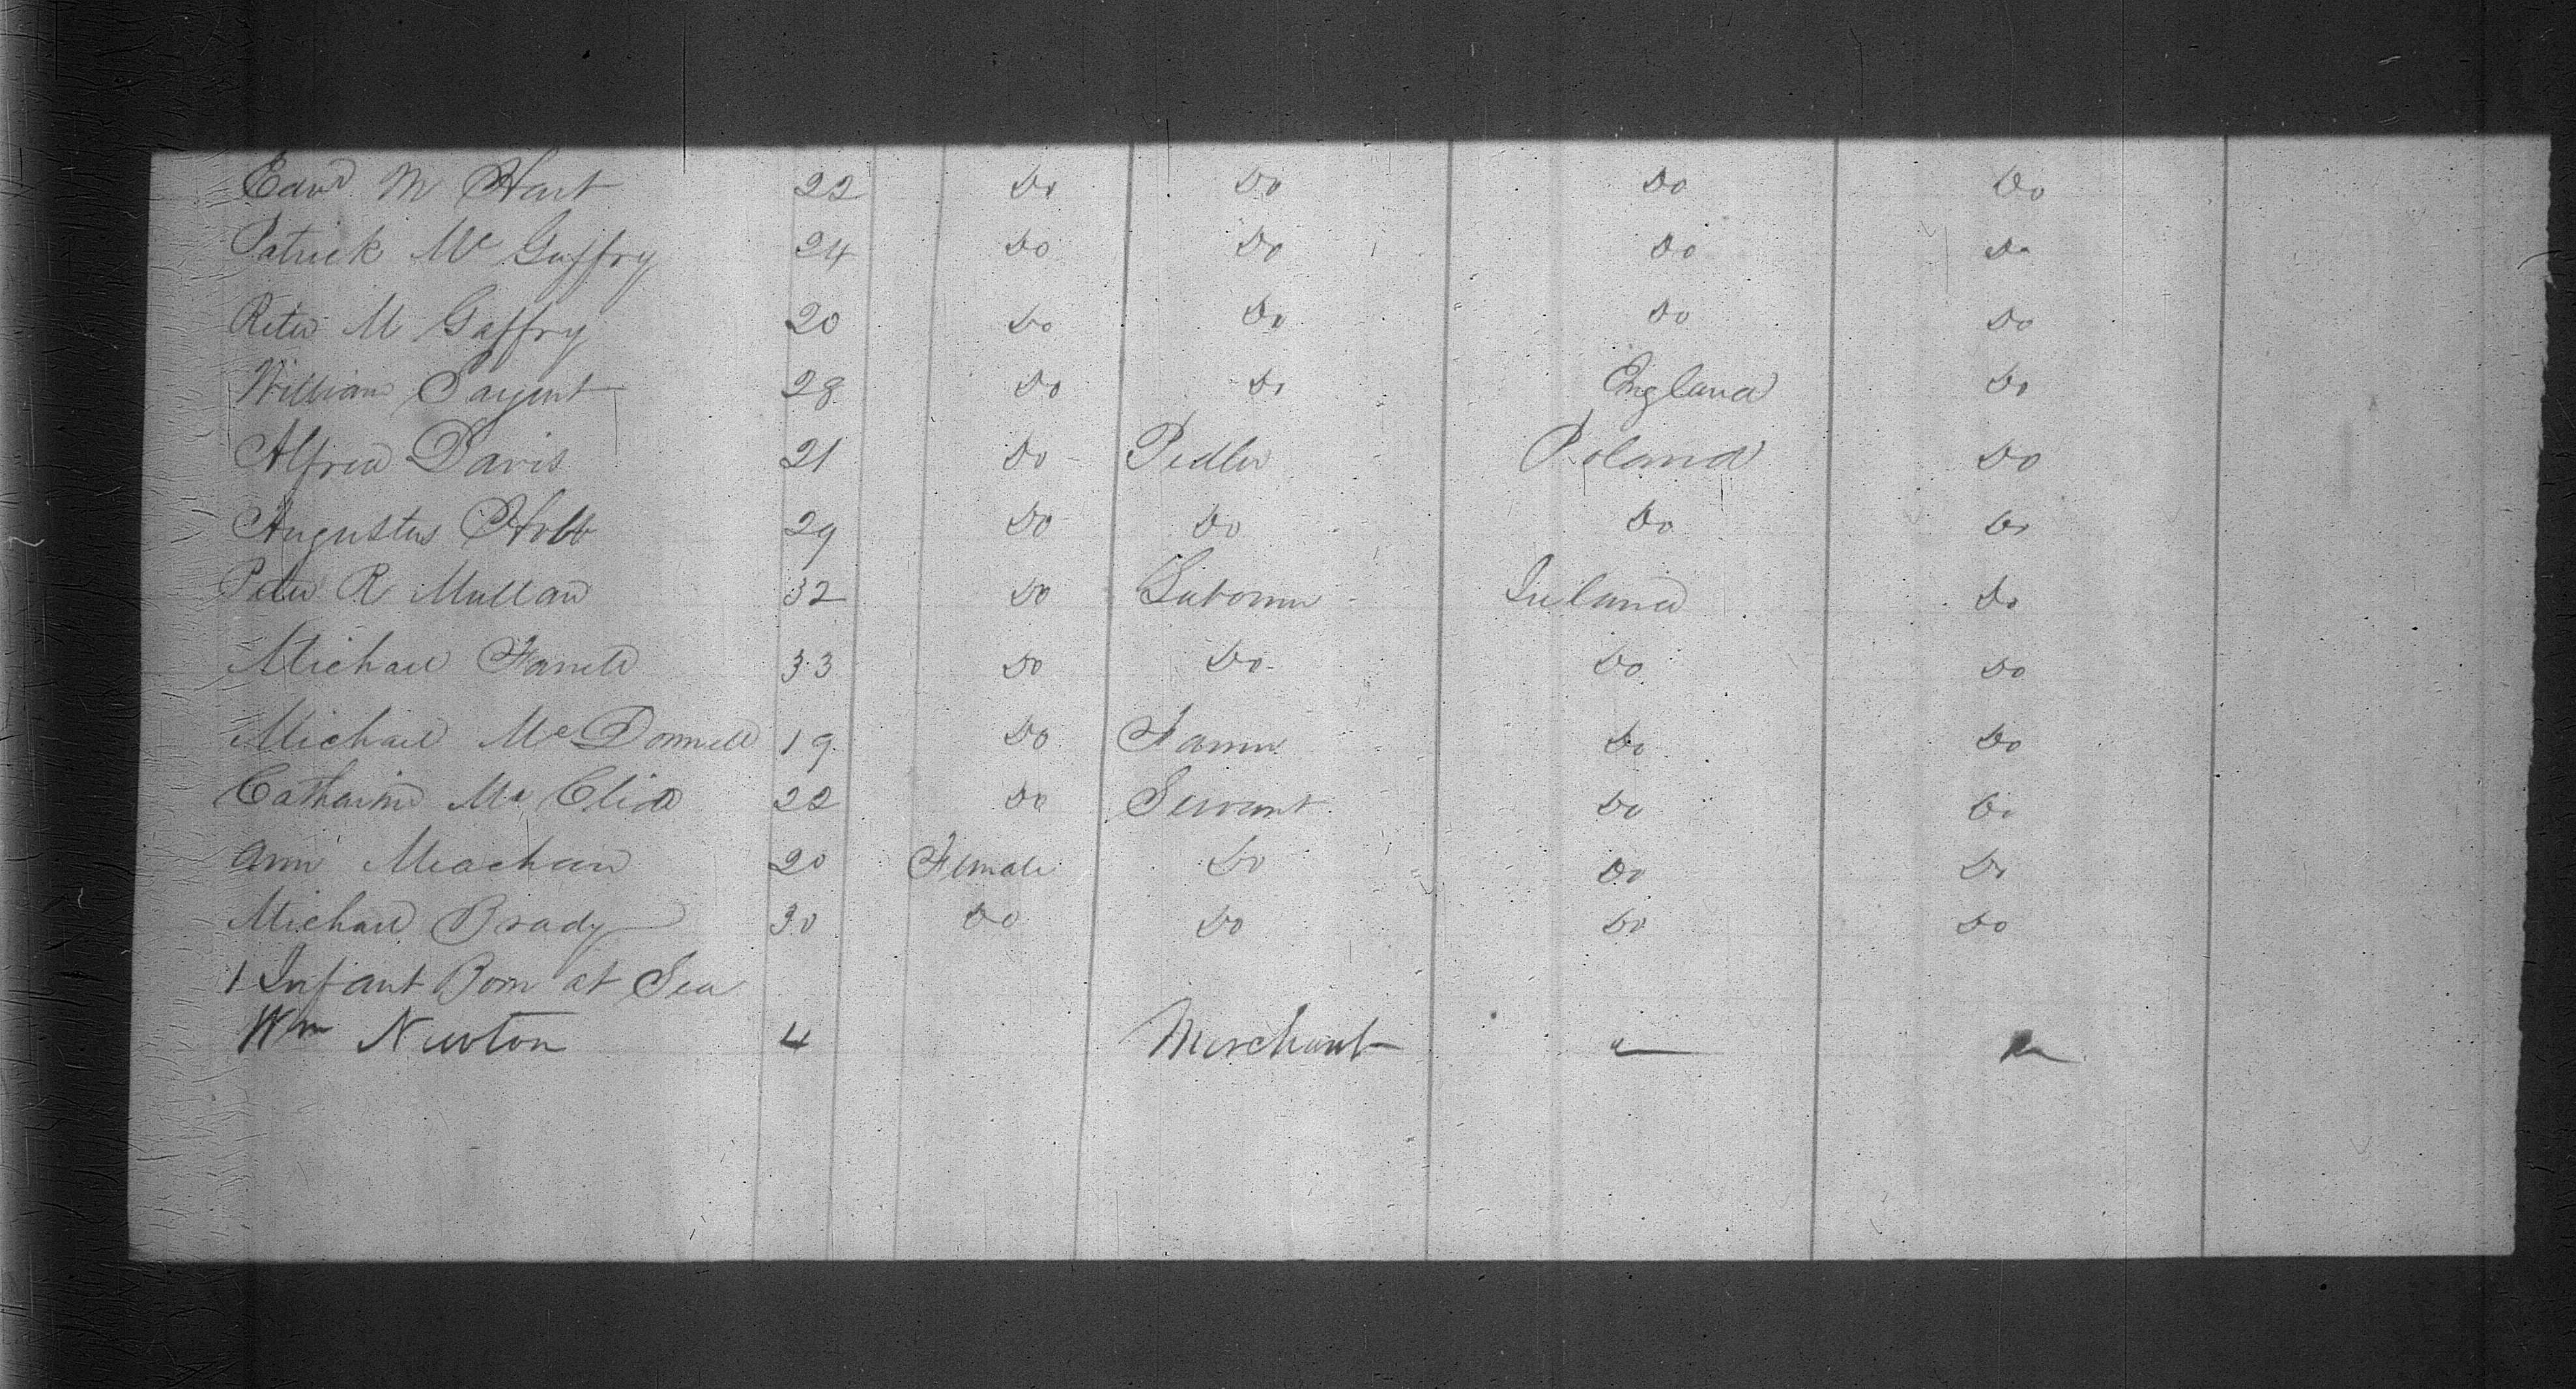 Edwd M Hart 22 Do Do Do Do
Patrick Mc Gaffry 24 Do Do Do Do
Peter M Gaffry 20 Do Do Do Do
William Sargent 28 Do Do England Do
Alfred Davis 21 Do Pedler Poland Do
Augustus Holb 29 Do Do Do Do
Peter R Mullan 32 Do Laborer Ireland Do
Michael Farrell 33 Do Do Do Do
Michael McDonnell 19 Do Farmer Do Do
Catharine Mc 22 Do Servant Do Do
Ann Meachan 20 Female Do Do Do
Michael Brady 30 Do Do Do Do
1 Infant Born at Sea
Wm Newton 4 Merchant